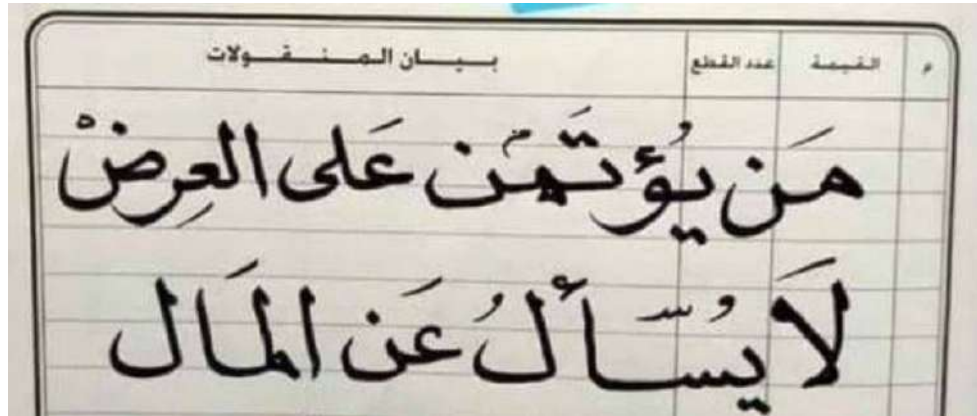 م القيمة عدد القطع بيان المنقولات
مَن يُؤتَمَن عَلى العِرضْ
لَا يُسأَلُ عَن المَال